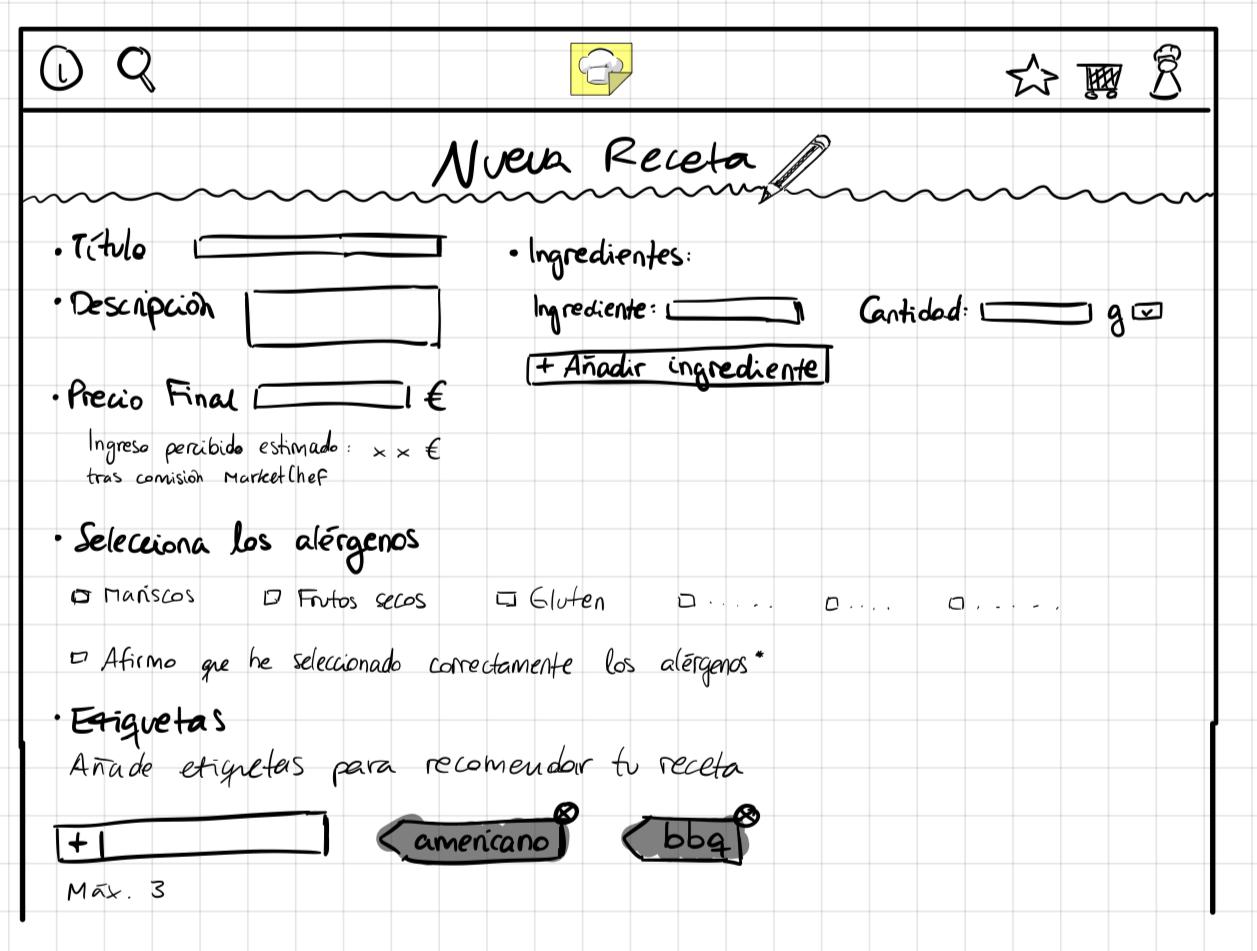 Nueva Receta
• Título
• Descripción
• Precio Final €
Ingreso percibido estimado: x x €
tras comisión MarketChef
• Ingredientes:
Ingrediente: Cantidad: g
+ Añadir ingrediente
• Selecciona los alérgenos
Mariscos Frutos secos Gluten ..... .... ......
Afirmo que he seleccionado correctamente los alérgenos*
• Etiquetas
Añade etiquetas para recomendar tu receta
+ americano bbq
Máx. 3